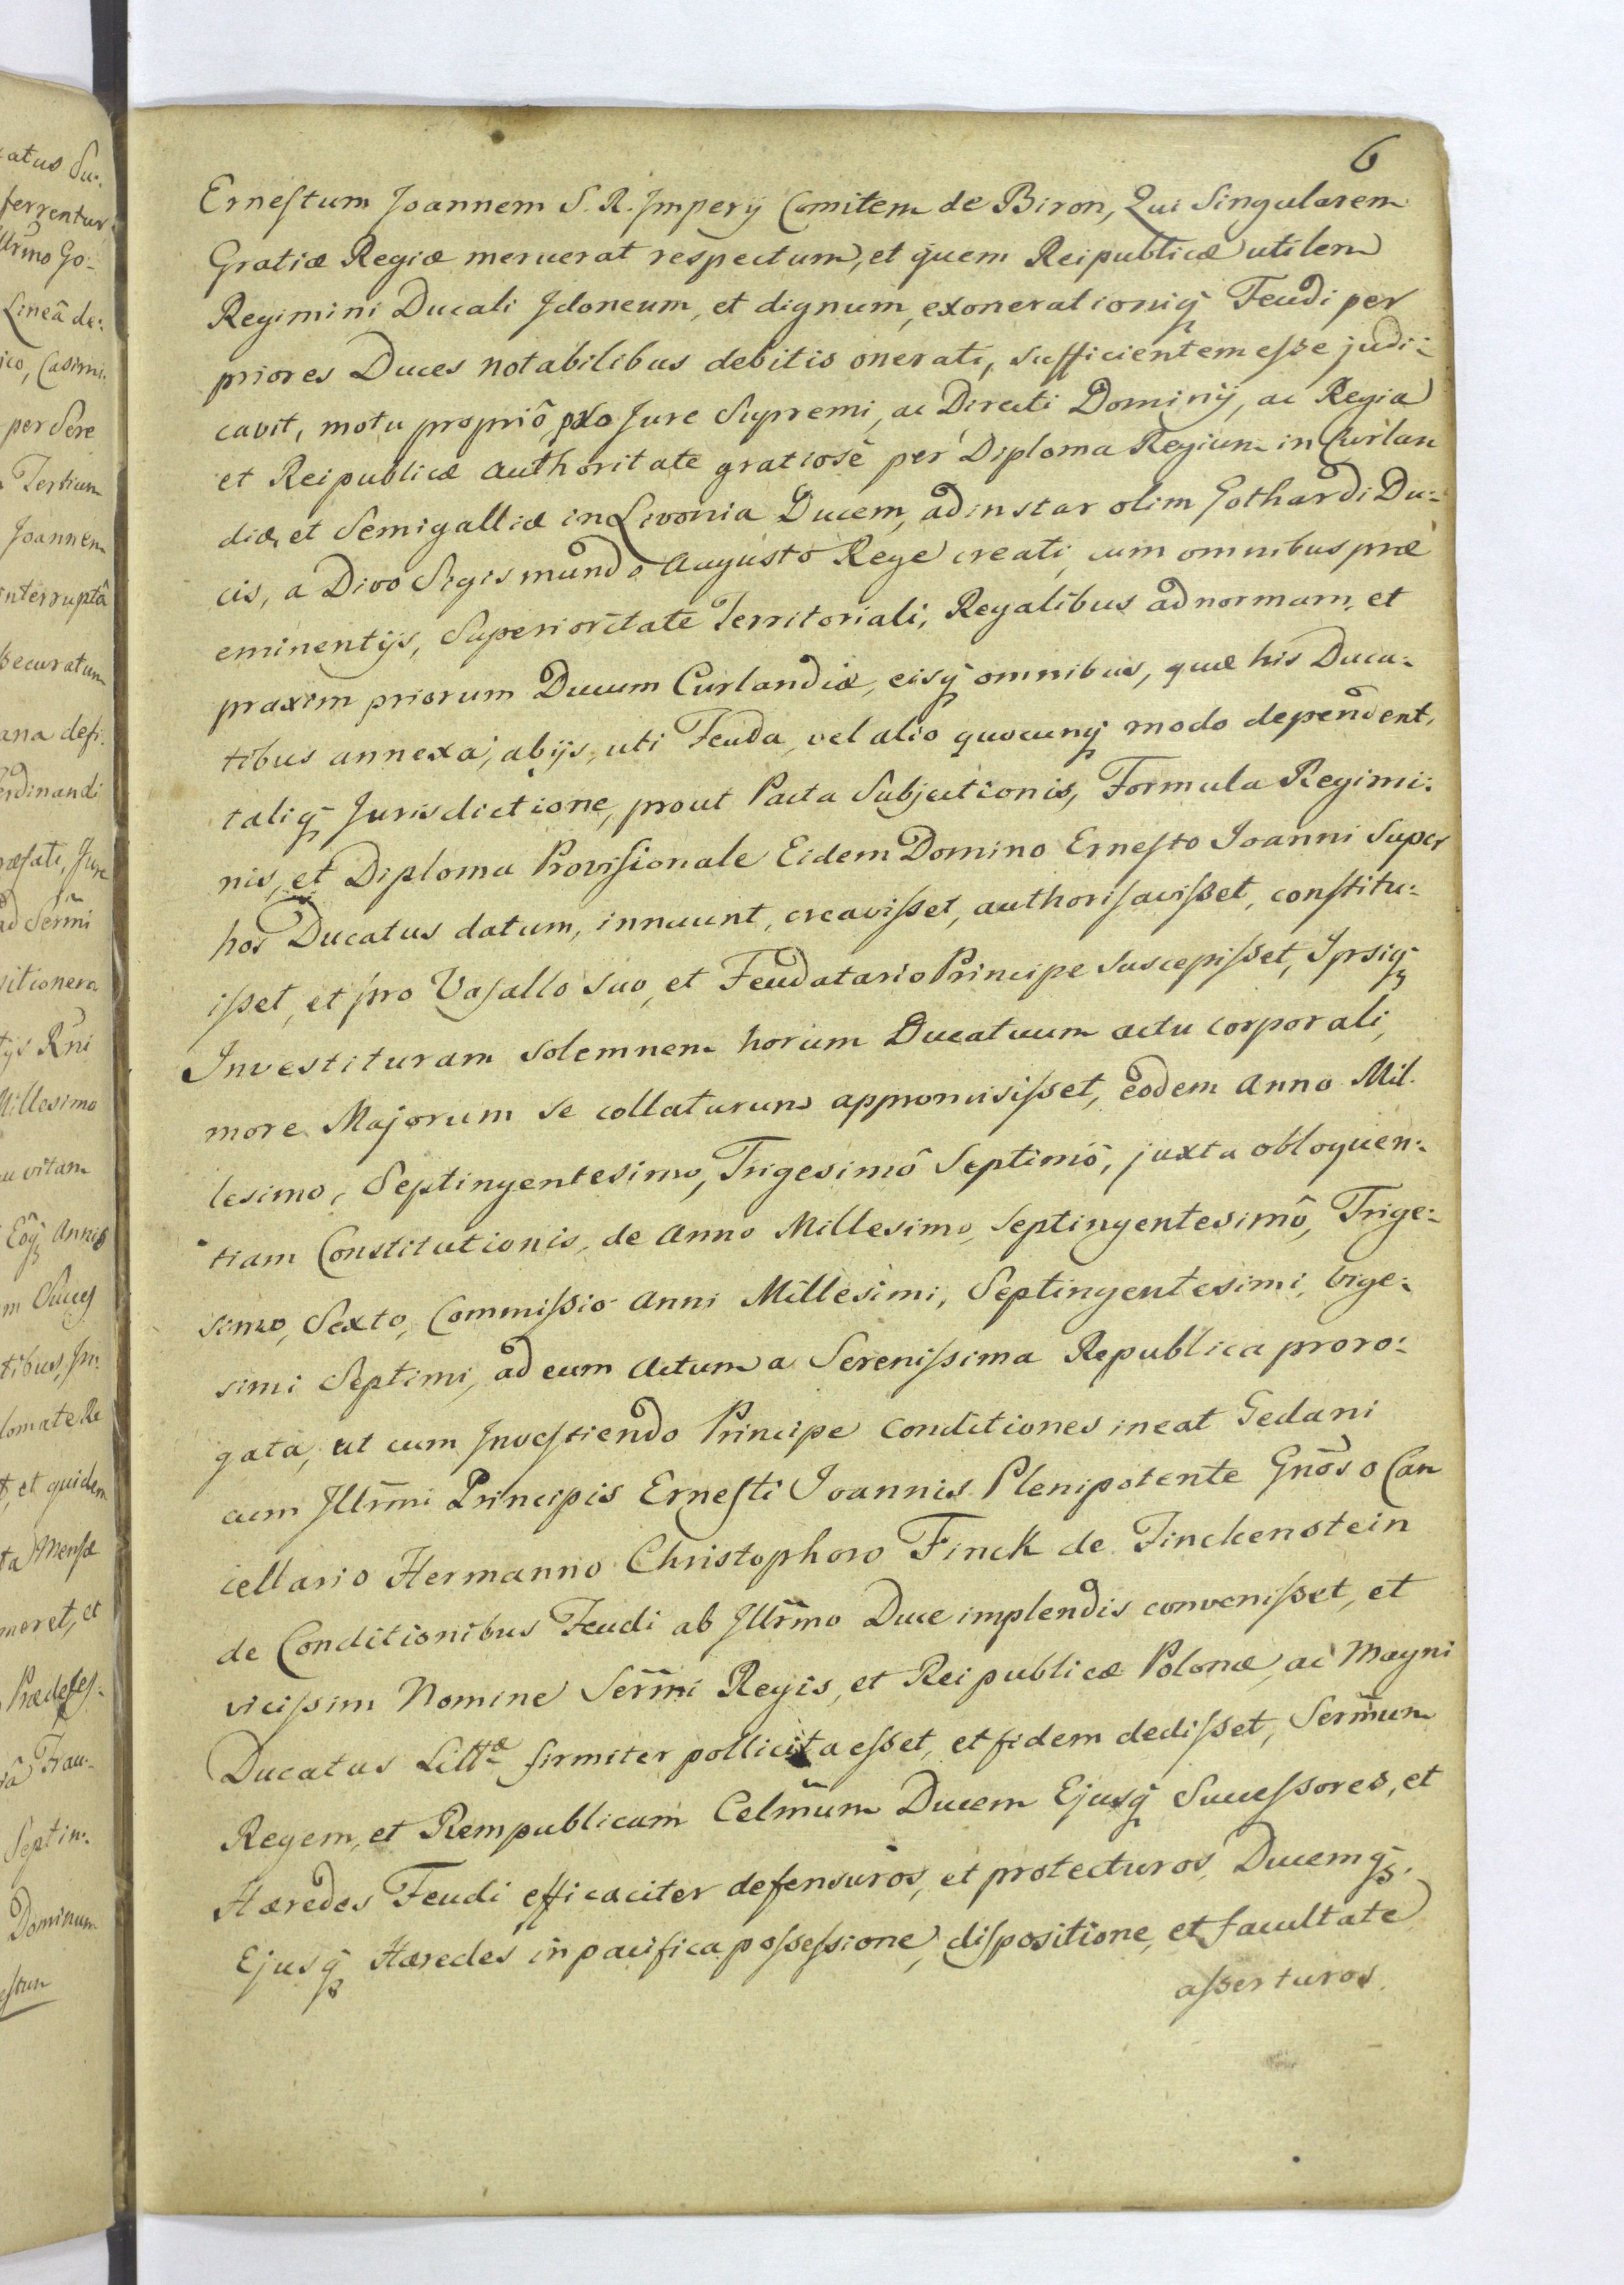 6
Erneſtum Joannem S. R. Imperÿ Comitem de Biron, Qui Singularem
Gratiæ Regiæ meruerat respectum, et quem Reipublicæ utilem
Regimini Ducali Idoneum, et dignum, exonerationiq̃ Feudi per
priores Duces notabilibus debitis onerati, sufficientem eſse judi:
cavit, motu propriô, pro Jure Supremi, ac Directi Dominÿ, ac Regia
et Reipublicæ authoritate gratiosè per Diploma Regium in Curlan
diæ, et Semigalliæ in Livonia Ducem, ad instar olim Gothardi Du:
cis, a Divo Sigismundo Augusto Rege creati, cum omnibus præ
eminentÿs, Superioritate Territoriali, Regalibus ad normam, et
praxim priorum Ducum Curlandiæ, eisq̃ omnibus, quæ his Duca:
tibus annexa, ab ÿs, uti Feuda, vel alio quocunq̃ modo dependent,
taliq̃ Jurisdictione, prout Pacta Subjectionis, Formula Regimi:
nis, et Diploma Proviſionale Eidem Domino Erneſto Joanni Super
hos Ducatus datum, innuunt, creaviſset, authoriſaviſset, conſtitu:
iſset, et pro Vaſallo suo, et Feudatario Principe suscepiſset, Ipsiq̃
Investituram solemnem horum Ducatuum actu corporali,
more Majorum se collaturum appromisiſset, eodem Anno Mil:
lesimo, Septingentesimo, Trigesimô Septimô, juxta obloquen:
tiam Constitutionis, de Anno Millesimo, Septingentesimô, Trige:
simo, Sexto, Commiſsio Anni Millesimi, Septingentesimi, vige:
simi Septimi, ad eum actum a Sereniſsima Republica proro:
gata, ut cum Inveſtiendo Principe conditiones ineat Gedani
cum Illr̃mi Principis Erneſti Joannis Plenipotente Gñoso Can
cellario Hermanno Christophoro Finck de Finckenstein
de Conditionibus Feudi ab Illr̃mo Duce implendis conveniſset, et
viciſsim Nomine Ser̃mi Regis, et Reipublicæ Polonæ, ac Magni
Ducatus Littæ firmiter pollicita eſset, et fidem dediſset, Ser̃mum
Regem, et Rempublicam Celm̃um Ducem Ejusq̃ Succeſsores, et
Hæredes Feudi efficaciter defensuros, et protecturos, Ducemq̃
Ejusq̃ Hæredes in pacifica poſseſsione, diſpositione, et facultate
aſserturos.